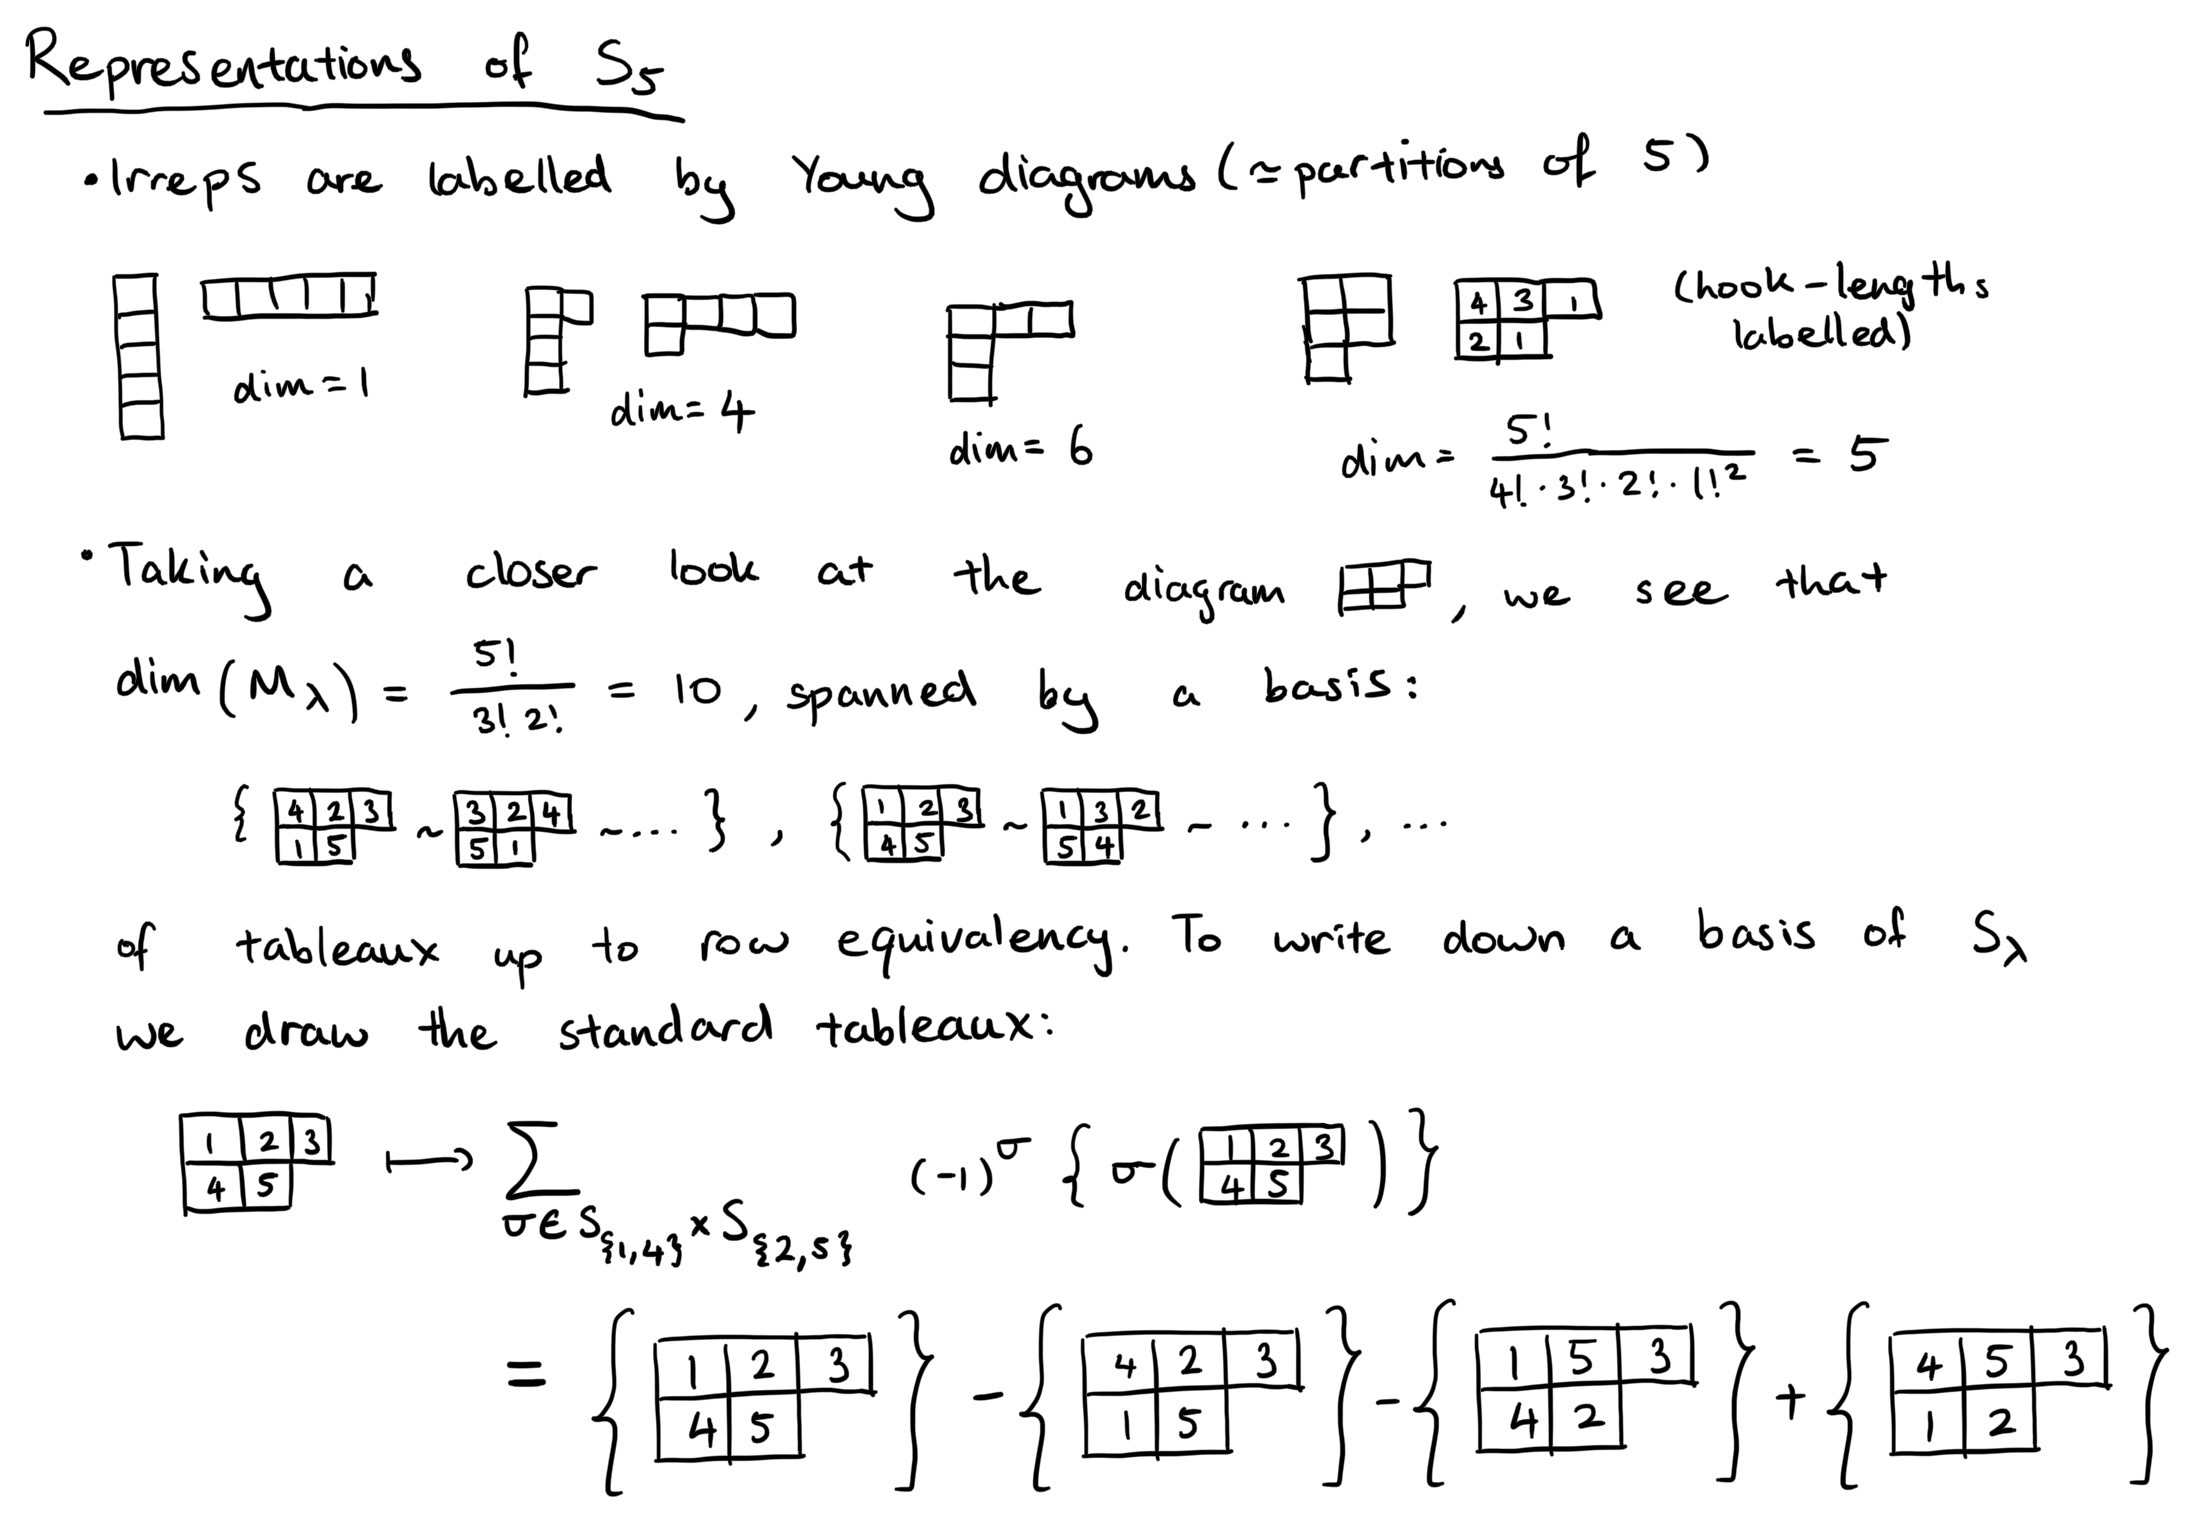 Representations of S₅
• Irreps are labelled by Young diagrams (≃ partitions of 5)
4 3 1
2 1
(hook-lengths
labelled)
dim = 1
dim = 4
dim = 6
dim = 5! / (4! · 3! · 2! · 1!²) = 5
• Taking a closer look at the diagram , we see that
dim (M_λ) = 5! / (3! 2!) = 10 , spanned by a basis:
{ 4 2 3 / 1 5 ~ 3 2 4 / 5 1 ~ ... } , { 1 2 3 / 4 5 ~ 1 3 2 / 5 4 ~ ... } , ...
of tableaux up to row equivalency. To write down a basis of S_λ
we draw the standard tableaux:
1 2 3 / 4 5 ⟼ ∑_{σ ∈ S_{{1,4}} × S_{{2,5}}} (-1)^σ { σ( 1 2 3 / 4 5 ) }
= { 1 2 3 / 4 5 } - { 4 2 3 / 1 5 } - { 1 5 3 / 4 2 } + { 4 5 3 / 1 2 }